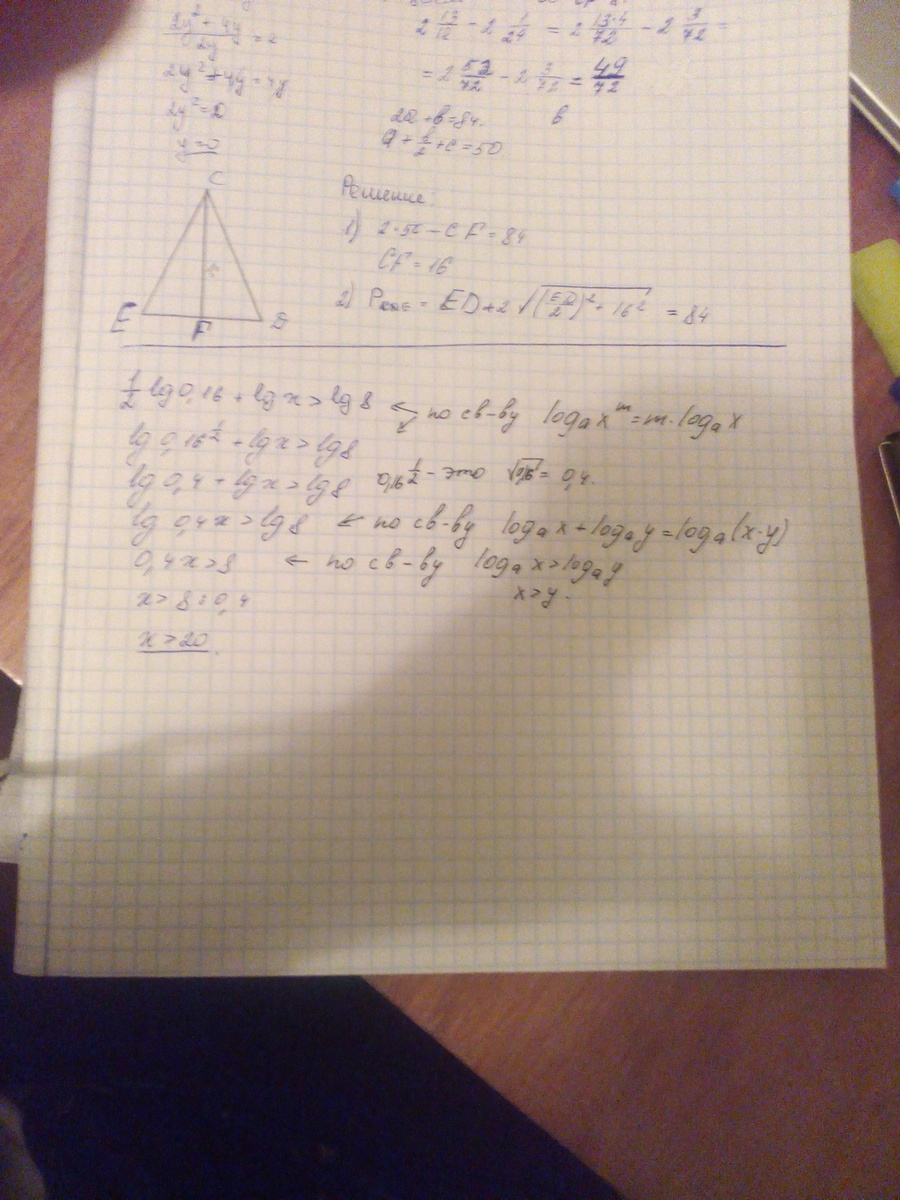 2y² + 4y / 2y = 2
2y² + 4y = 4y
2y² = 0
y = 0
2 13/12 - 2 1/24 = 2 13·4/72 - 2 3/72 =
= 2 53/72 - 2 3/72 = 49/72
2a + b = 84. b
a + b/2 + c = 50
C
E F D
Решение:
1) 2·50 - CF = 84
CF = 16
2) P = ED + 2 √((ED/2)² + 16²) = 84
1/2 lg 0,16 + lg x > lg 8 ← по св-ву logₐ xᵐ = m·logₐ x
lg 0,16^1/2 + lg x > lg 8
lg 0,4 + lg x > lg 8 0,16^1/2 - это √0,16 = 0,4.
lg 0,4x > lg 8 ← по св-ву logₐ x + logₐ y = logₐ (x·y)
0,4x > 8 ← по св-ву logₐ x > logₐ y
x > 8 : 0,4 x > y.
x > 20.